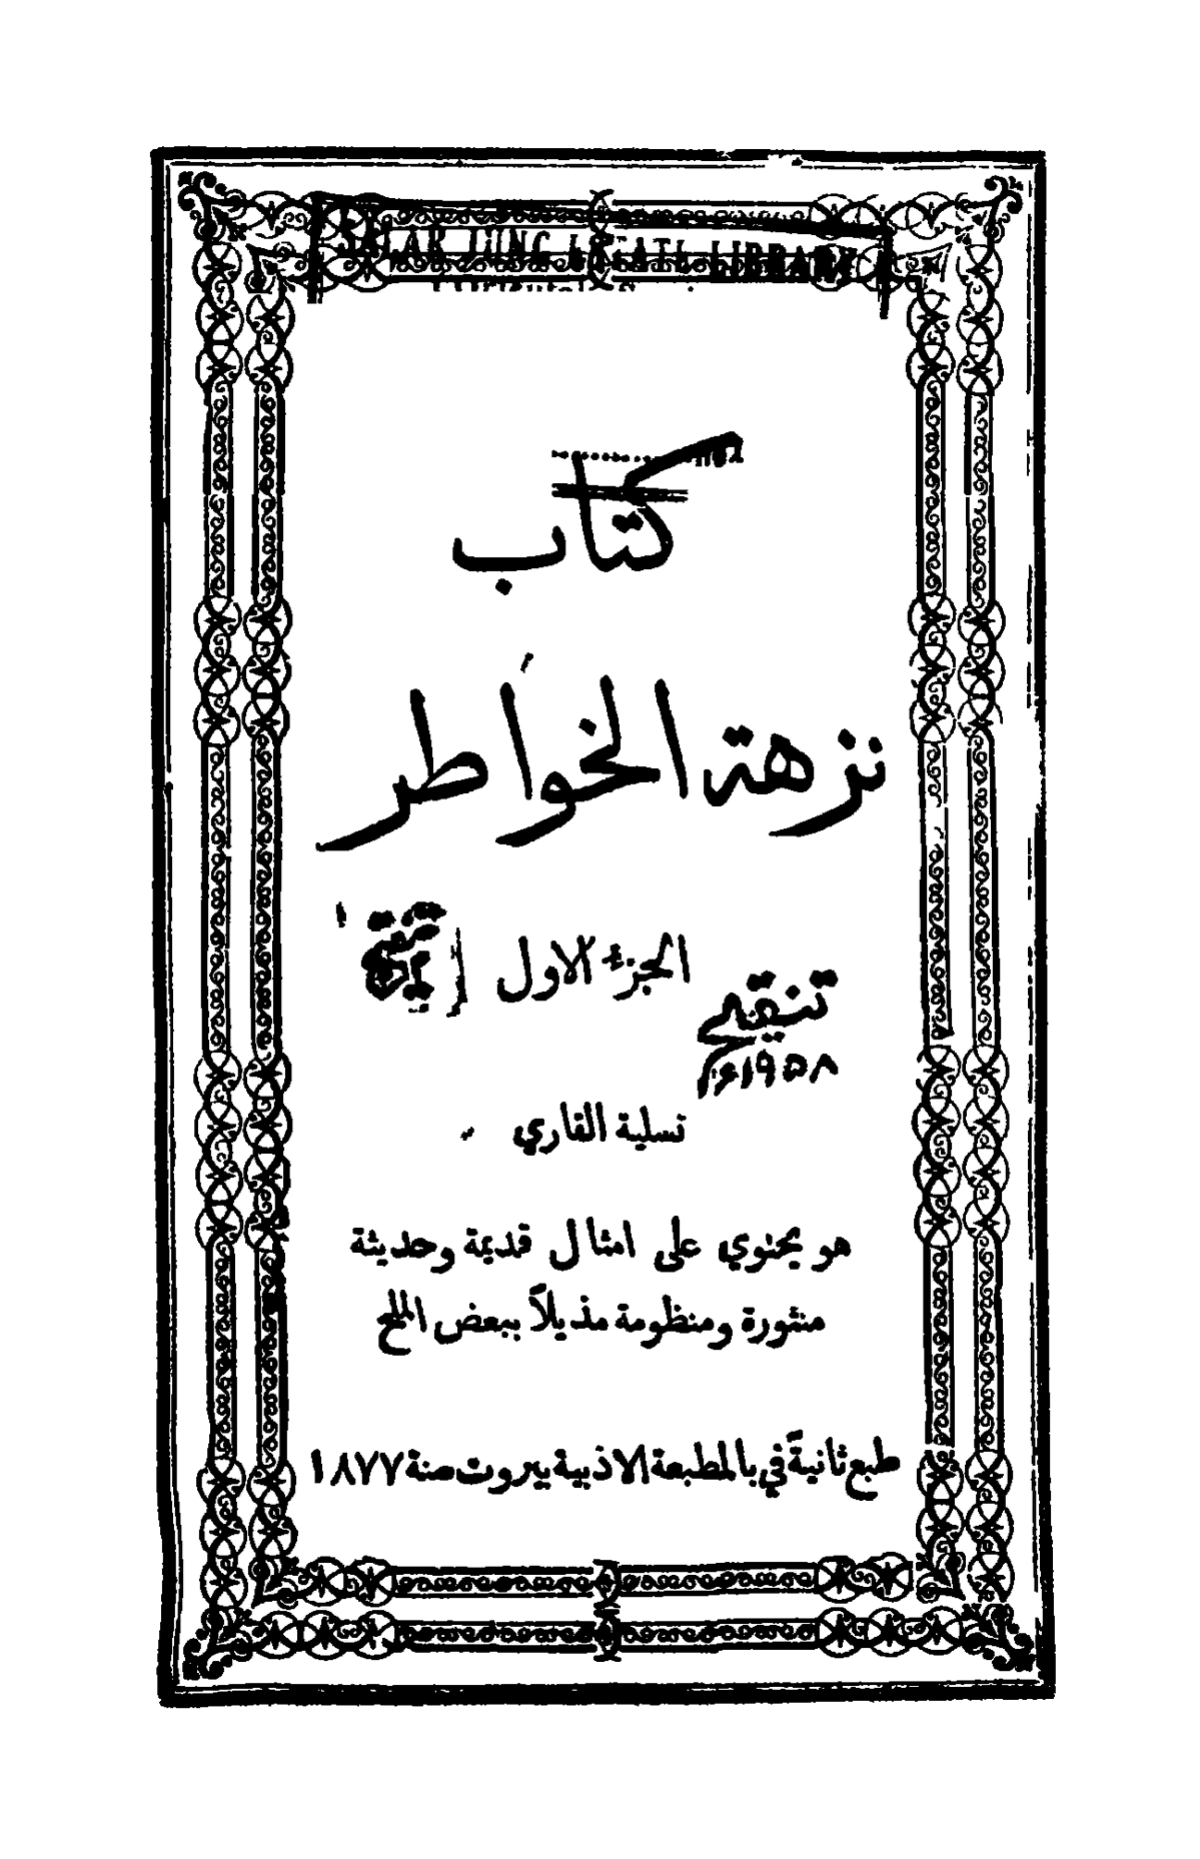 SALAR JUNG ESTATE LIBRARY
كتاب
نزهة الخواطر
الجزء الاول
تنقيح
١٩٥٨ء
تسلية القاري
هو يحنوي على امثال قديمة وحديثة
منثورة ومنظومة مذيلاً ببعض الملح
طبع ثانيةً في بالمطبعة الاذبية بيروت صنة ١٨٧٧